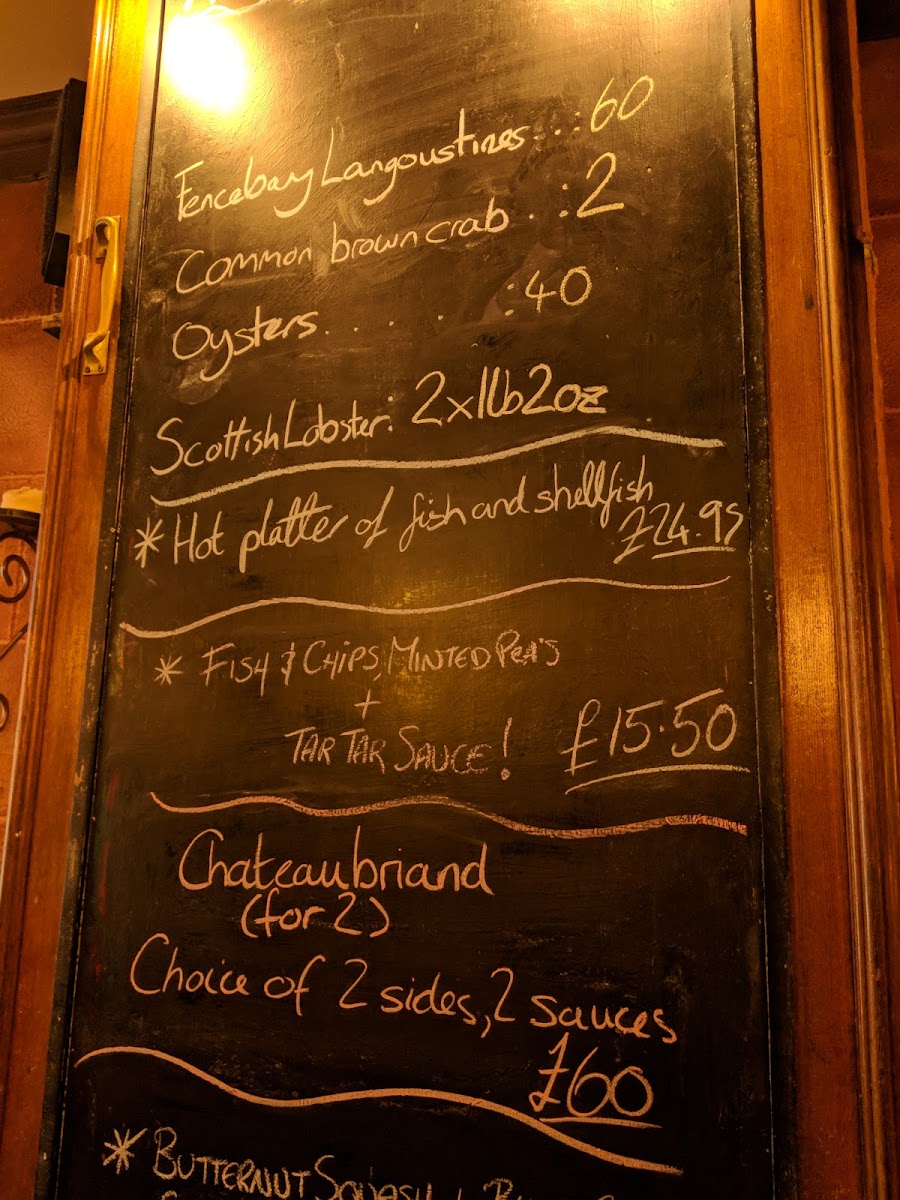 Fencebay Langoustines...:60
Common brown crab..:2
Oysters.....:40
Scottish Lobster: 2x1lb2oz
* Hot platter of fish and shellfish
£24.95
* FISH & CHIPS, MINTED PEA'S
+
TAR TAR SAUCE! £15.50
Chateaubriand
(for 2)
Choice of 2 sides, 2 sauces
£60
* BUTTERNUT SQUASH